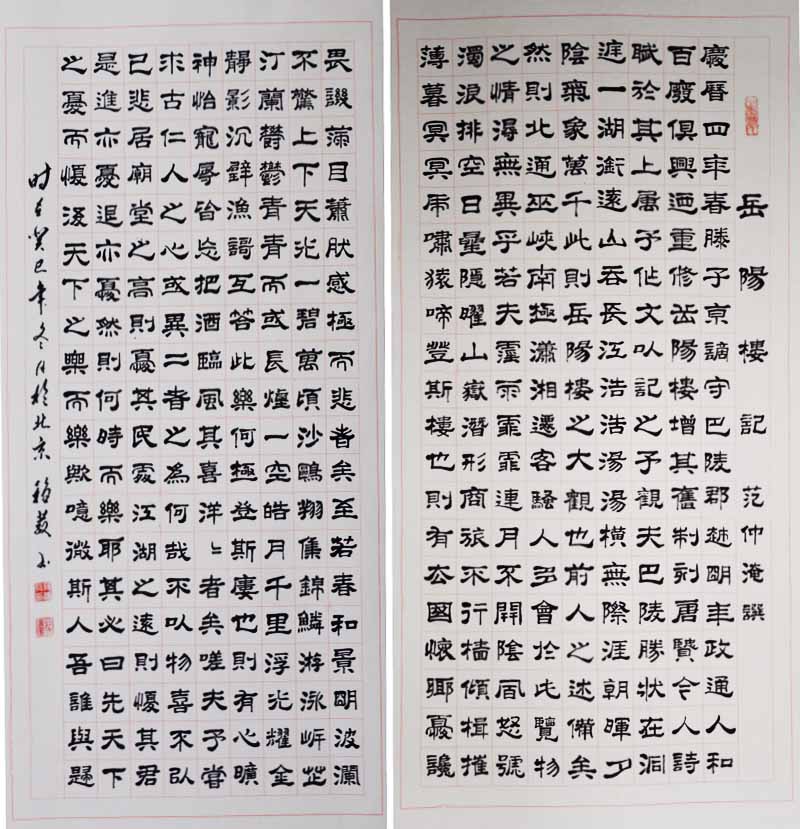 岳陽樓記 范仲淹撰
慶曆四年春滕子京謫守巴陵郡越明年政通人和
百廢俱興迺重修岳陽樓增其舊制刻唐賢今人詩
賦於其上屬予作文以記之予觀夫巴陵勝狀在洞
庭一湖銜遠山吞長江浩浩湯湯橫無際涯朝暉夕
陰氣象萬千此則岳陽樓之大觀也前人之述備矣
然則北通巫峽南極瀟湘遷客騷人多會於此覽物
之情得無異乎若夫霪雨霏霏連月不開陰風怒號
濁浪排空日星隱曜山嶽潛形商旅不行檣傾楫摧
薄暮冥冥虎嘯猿啼登斯樓也則有去國懷鄉憂讒
畏譏滿目蕭然感極而悲者矣至若春和景明波瀾
不驚上下天光一碧萬頃沙鷗翔集錦鱗游泳岸芷
汀蘭鬱鬱青青而或長煙一空皓月千里浮光耀金
靜影沉璧漁歌互答此樂何極登斯樓也則有心曠
神怡寵辱皆忘把酒臨風其喜洋洋者矣嗟夫予嘗
求古仁人之心或異二者之為何哉不以物喜不以
己悲居廟堂之高則憂其民處江湖之遠則憂其君
是進亦憂退亦憂然則何時而樂耶其必曰先天下
之憂而憂後天下之樂而樂歟噫微斯人吾誰與歸
时在癸巳年冬月於北京